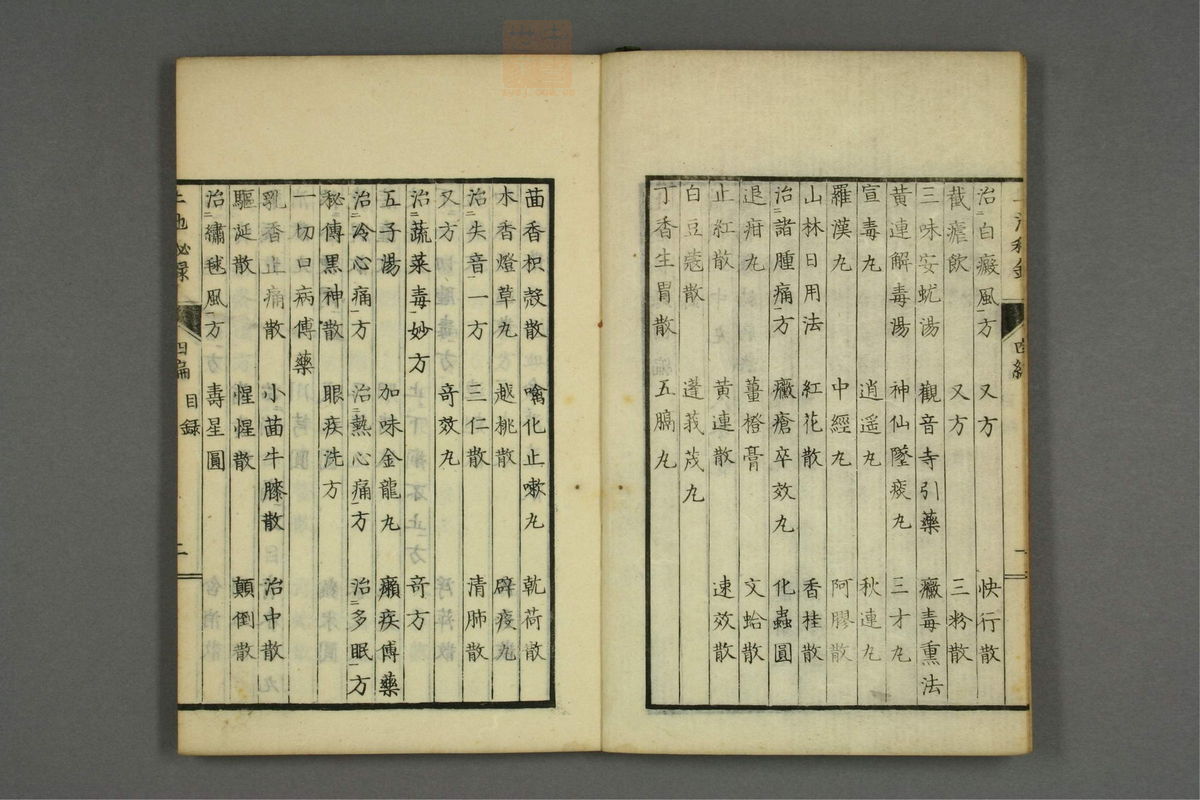 治二白癜風一方　又方　快行散
截瘧飮　又方　三粉散
三味安蚘湯　觀音寺引藥　癥毒熏法
黄連解毒湯　神仙墜痰丸　三才丸
宣毒丸　逍遥丸　秋連丸
羅漢丸　中經丸　阿膠散
山林日用法　紅花散　香桂散
治二諸腫痛一方　癥瘡卒效丸　化蟲圓
退疳丸　薑橙膏　文蛤散
止紅散　黄連散　速效散
白豆蔻散　蓬莪茂丸
丁香生胃散　五膈丸
茴香枳殼散　噙化止嗽丸　乾荷散
木香燈草丸　越桃散　辟疫丸
治二失音一一方　三仁散　清肺散
又方　奇效丸
治二蔬菜毒一妙方　奇方
五子湯　加味金龍丸　癩疾傅藥
治二冷心痛一方　治二熱心痛一方　治二多眠一方
秘傳黒神散　眼疾洗方
一切口病傅藥
乳香止痛散　小茴牛膝散　治中散
驅涎散　惺惺散　顛倒散
治二繡毬風一方　壽星圓
四編　目録　二